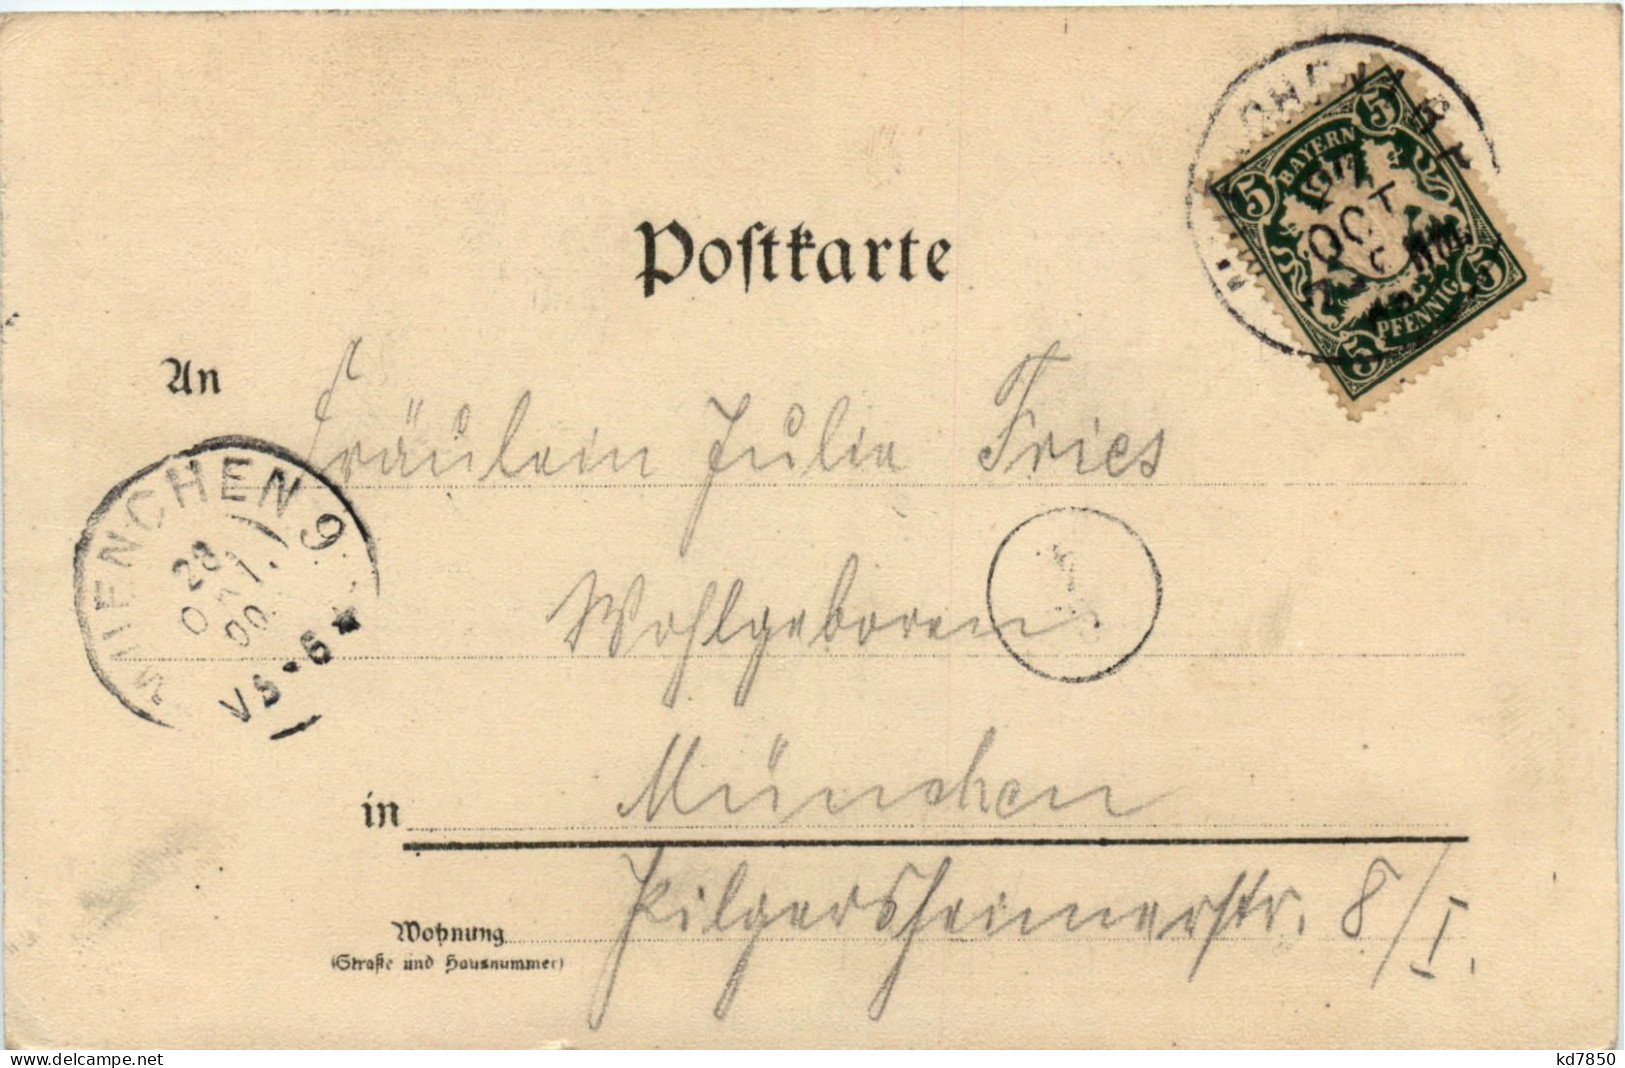 Postkarte
BAYERN
5
5
5
5
PFENNIG
27
OCT
An Fräulein Julie Fries
MUENCHEN 9
28
OKT.
00
V5-6
Wohlgeboren
in München
Wohnung Pilgersheimerstr. 8/I.
(Straße und Hausnummer)
www.delcampe.net
kd7850